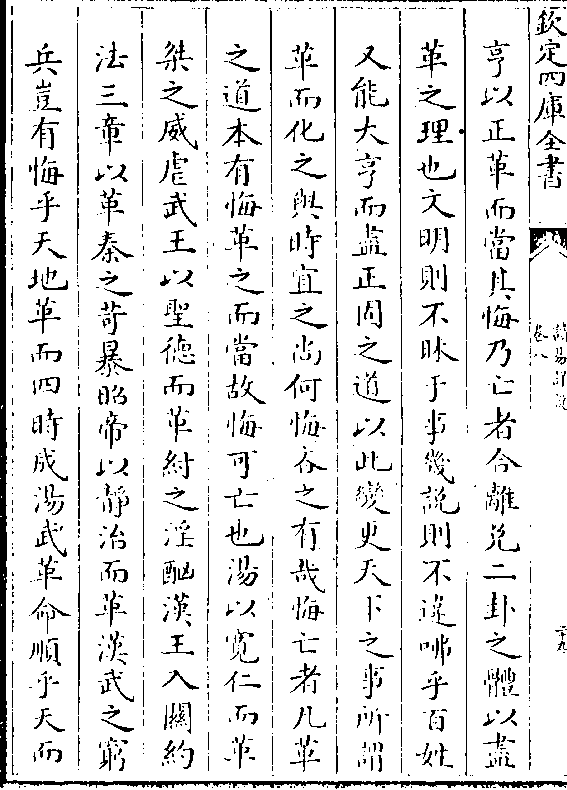 欽定四庫全書
卷八
亨以正革而當其悔乃亡者合離兌二卦之體以盡
革之理也文明則不昧于事幾説則不違咈乎百姓
又能大亨而盡正固之道以此變更天下之事所謂
革而化之與時宜之尚何悔吝之有哉悔亡者凡革
之道本有悔革之而當故悔可亡也湯以寛仁而革
桀之威虐武王以聖德而革紂之淫酗漢王入關約
法三章以革秦之苛暴昭帝以靜治而革漢武之窮
兵豈有悔乎天地革而四時成湯武革命順乎天而